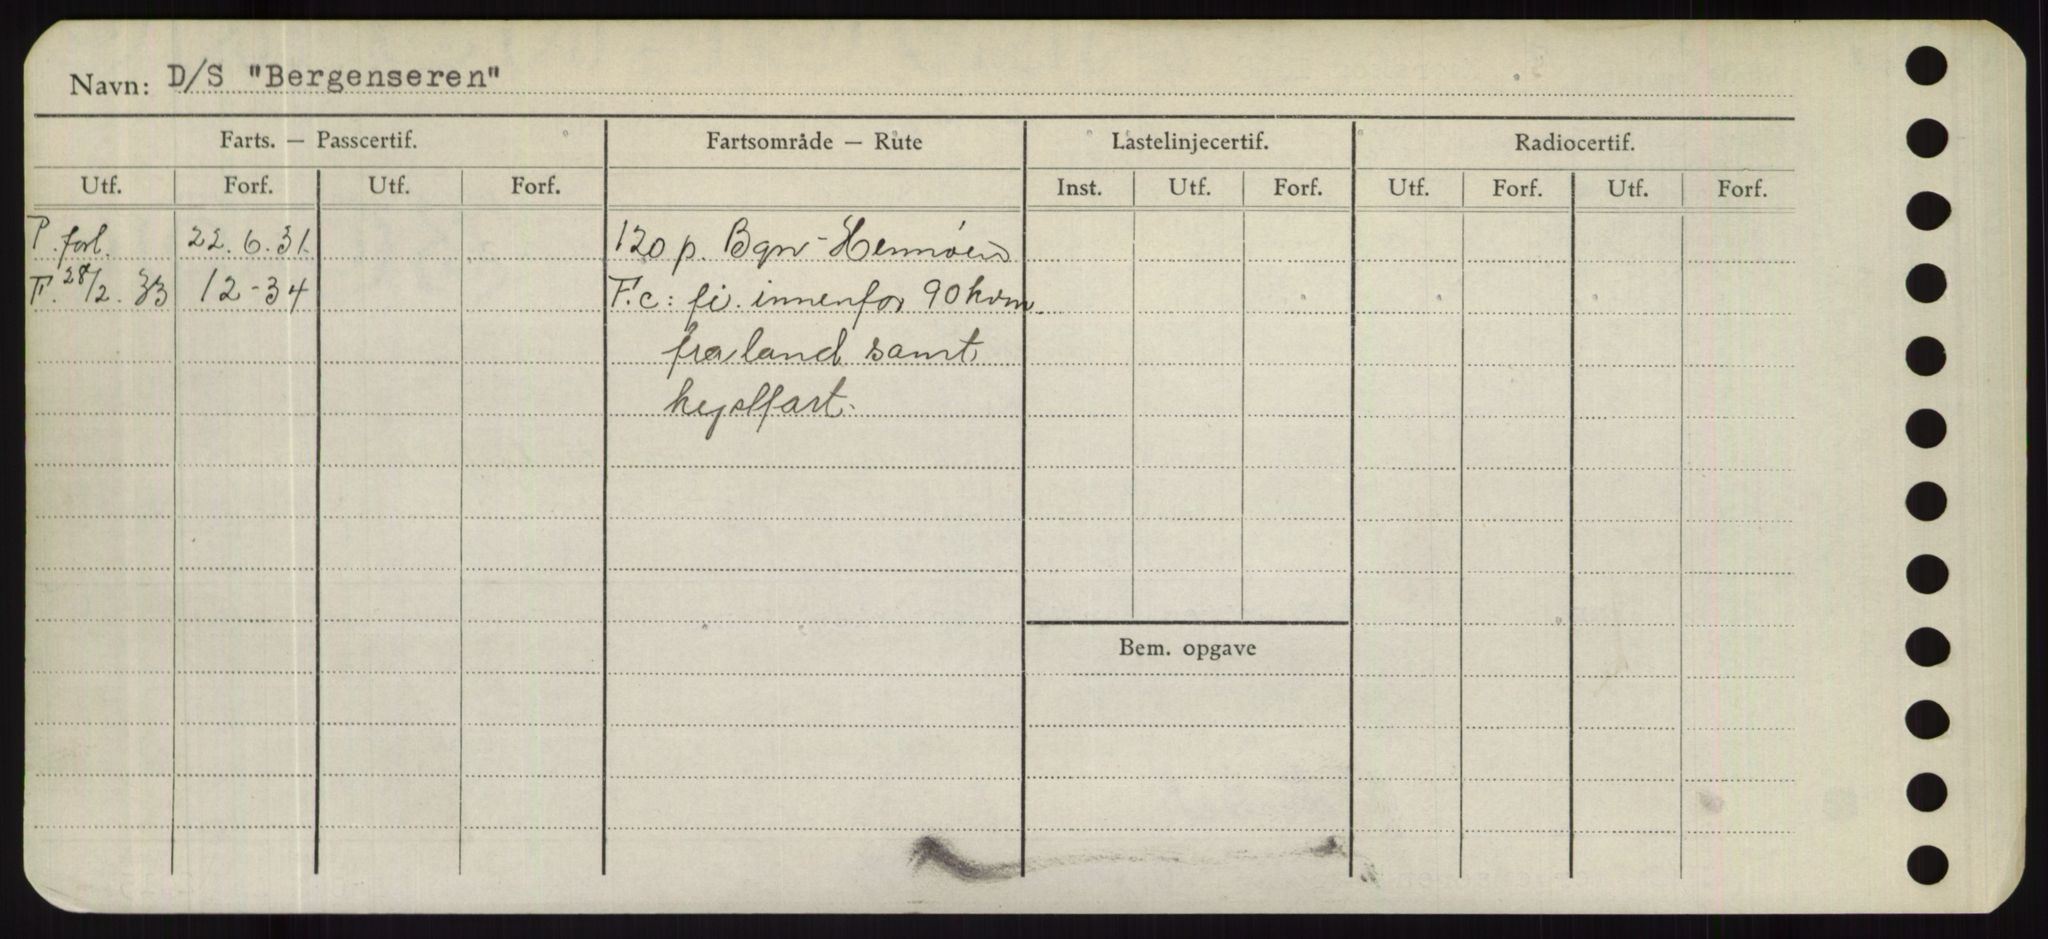 Navn: D/S "Bergenseren"
Farts. — Passcertif. Fartsområde — Rute Lastelinjecertif. Radiocertif.
Utf. Forf. Utf. Forf. Inst. Utf. Forf. Utf. Forf. Utf. Forf.
P. forl. 22.6.31. 120 p. Bgn - Hennøen
F. 28/2. 33 12-34 F.c: fi. innenfor 90 kvm.
fra land samt
Bem. opgave